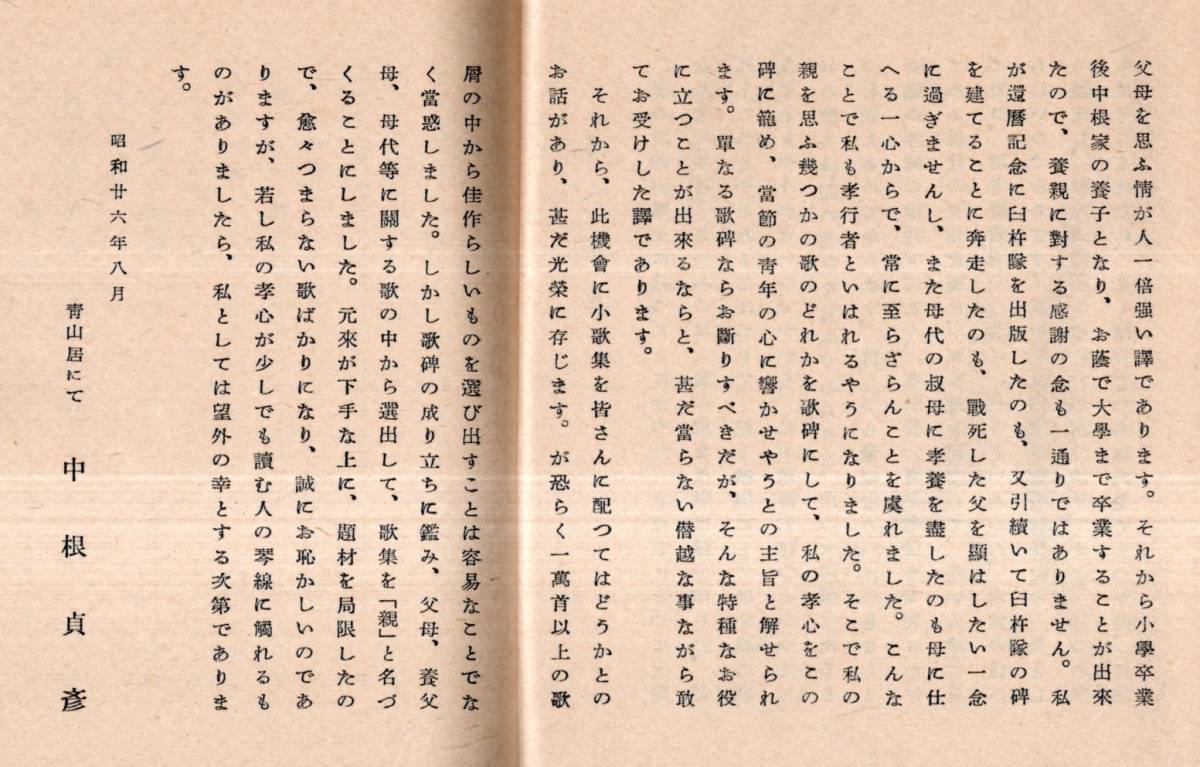 父母を思ふ情が人一倍强い譯であります。それから小學卒業
後中根家の養子となり、お蔭で大學まで卒業することが出來
たので、養親に對する感謝の念も一通りではありません。私
が還曆記念に臼杵隊を出版したのも、又引續いて臼杵隊の碑
を建てることに奔走したのも、戰死した父を顯はしたい一念
に過ぎませんし、また母代の叔母に孝養を盡したのも母に仕
へる一心からで、常に至らざらんことを虞れました。こんな
ことで私も孝行者といはれるやうになりました。そこで私の
親を思ふ幾つかの歌のどれかを歌碑にして、私の孝心をこの
碑に籠め、當節の靑年の心に響かせやうとの主旨と解せられ
ます。單なる歌碑ならお斷りすべきだが、そんな特種なお役
に立つことが出來るならと、甚だ當らない僭越な事ながら敢
てお受けした譯であります。
それから、此機會に小歌集を皆さんに配つてはどうかとの
お話があり、甚だ光榮に存じます。が恐らく一萬首以上の歌
屑の中から佳作らしいものを選び出すことは容易なことでな
く當惑しました。しかし歌碑の成り立ちに鑑み、父母、養父
母、母代等に關する歌の中から選出して、歌集を「親」と名づ
くることにしました。元來が下手な上に、題材を局限したの
で、愈々つまらない歌ばかりになり、誠にお恥かしいのであ
りますが、若し私の孝心が少しでも讀む人の琴線に觸れるも
のがありましたら、私としては望外の幸とする次第でありま
す。
昭和廿六年八月
靑山居にて
中根貞彥